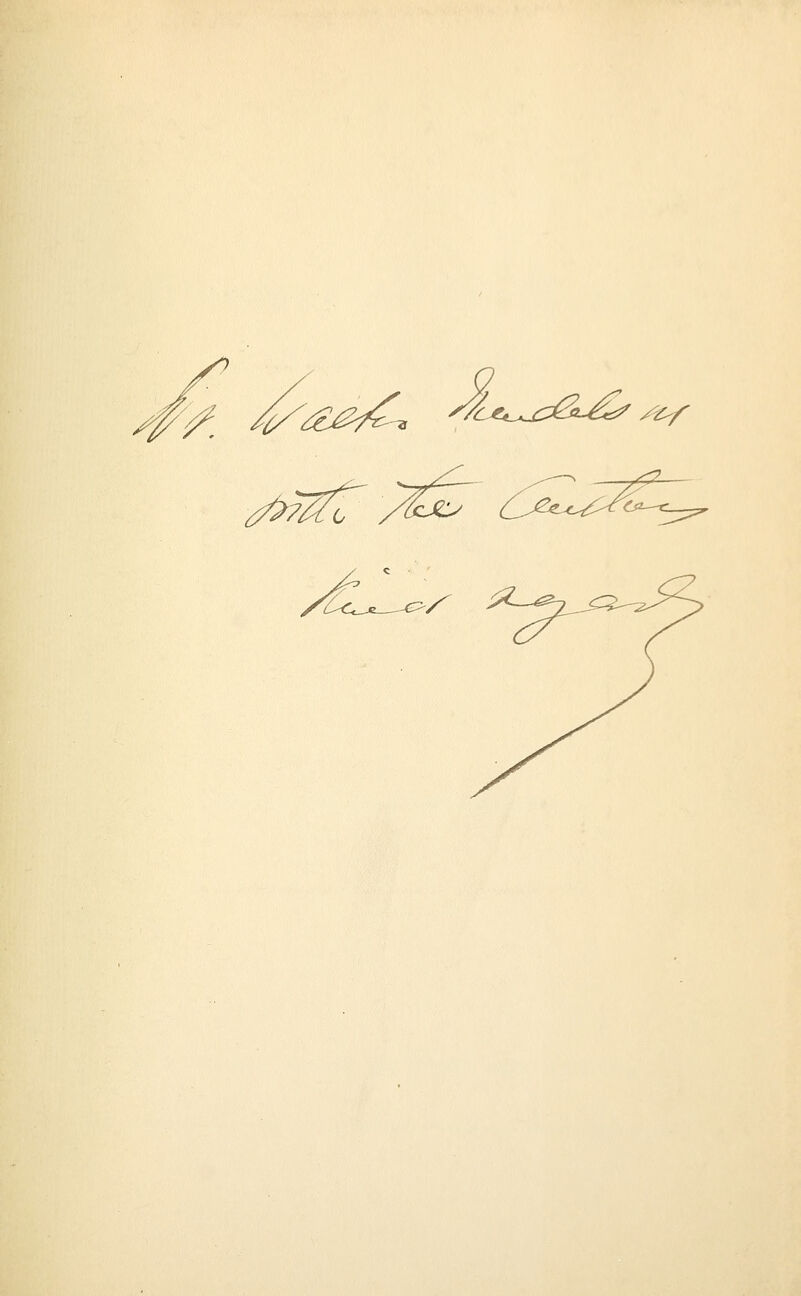 Dr. Walter Mendelson
with the Author's
kind regards